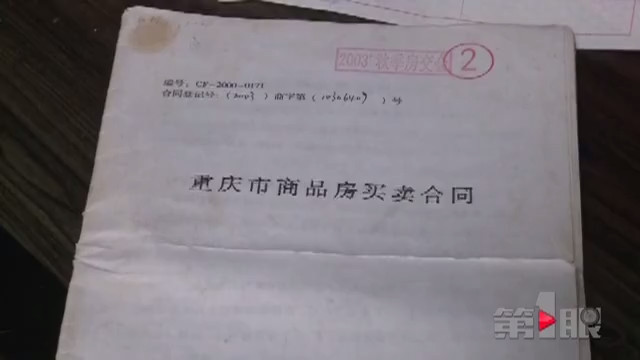 2003'秋季房交会
②
编号：CF-2000-0171
合同登记号：（2003）商字第（
）号
重庆市商品房买卖合同
第1眼